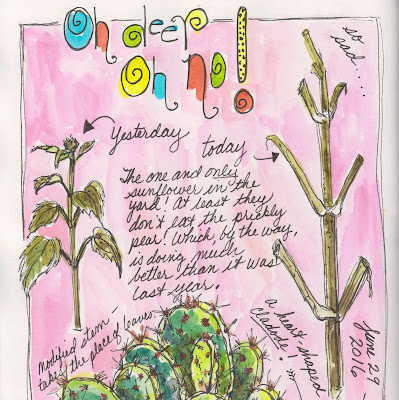 Oh deer
Oh no!
so
sad....
Yesterday
today
The one and only
sunflower in the
yard! At least they
don't eat the prickly
pear! Which, by the way,
is doing much
better than it was
last year.
Modified stem -
takes the place of leaves
a heart-shaped
cladode!
June 29
2016